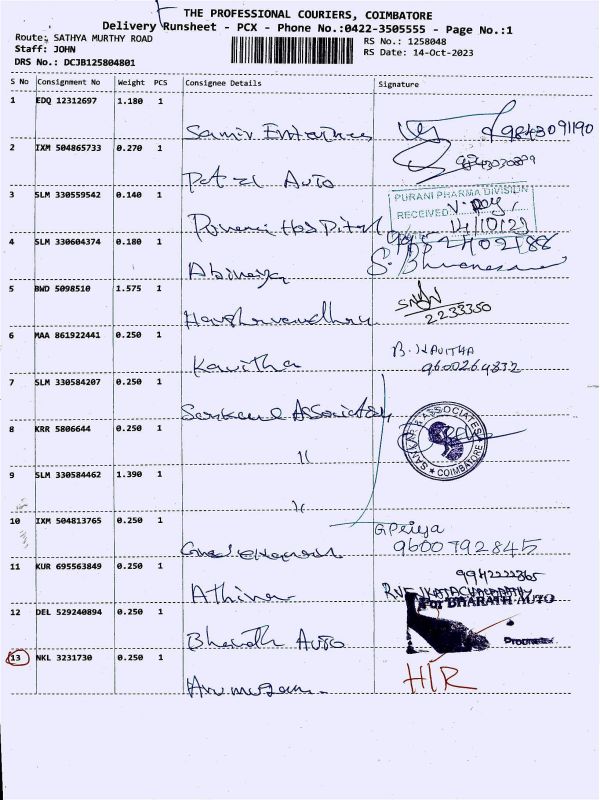 THE PROFESSIONAL COURIERS, COIMBATORE
Delivery Runsheet - PCX - Phone No.:0422-3505555 - Page No.:1
Route: SATHYA MURTHY ROAD
RS No.: 1258048
Staff: JOHN
RS Date: 14-Oct-2023
DRS No.: DCJB125804801
S No Consignment No Weight PCS Consignee Details Signature
1 EDQ 12312697 1.180 1
9843091190
2 IXM 504865733 0.270 1
Patel Auto
3 SLM 330559542 0.140 1
PURANI PHARMA DIVISION
RECEIVED
14/10/23
Purani Hospital
4 SLM 330604374 0.180 1
9952402188
Abinaya
5 BWD 5098510 1.575 1
2233350
6 MAA 861922441 0.250 1
B. KAVITHA
Kavitha
9600264832
7 SLM 330584207 0.250 1
Sankar Associates
8 KRR 5806644 0.250 1
SANKAR & ASSOCIATES
COIMBATORE
"
9 SLM 330584462 1.390 1
"
10 IXM 504813765 0.250 1
G. Priya
9600792845
11 KUR 695563849 0.250 1
Athina
12 DEL 529240894 0.250 1
For BHARATH AUTO
Bharath Auto
13 NKL 3231730 0.250 1
HIR
Arumugam